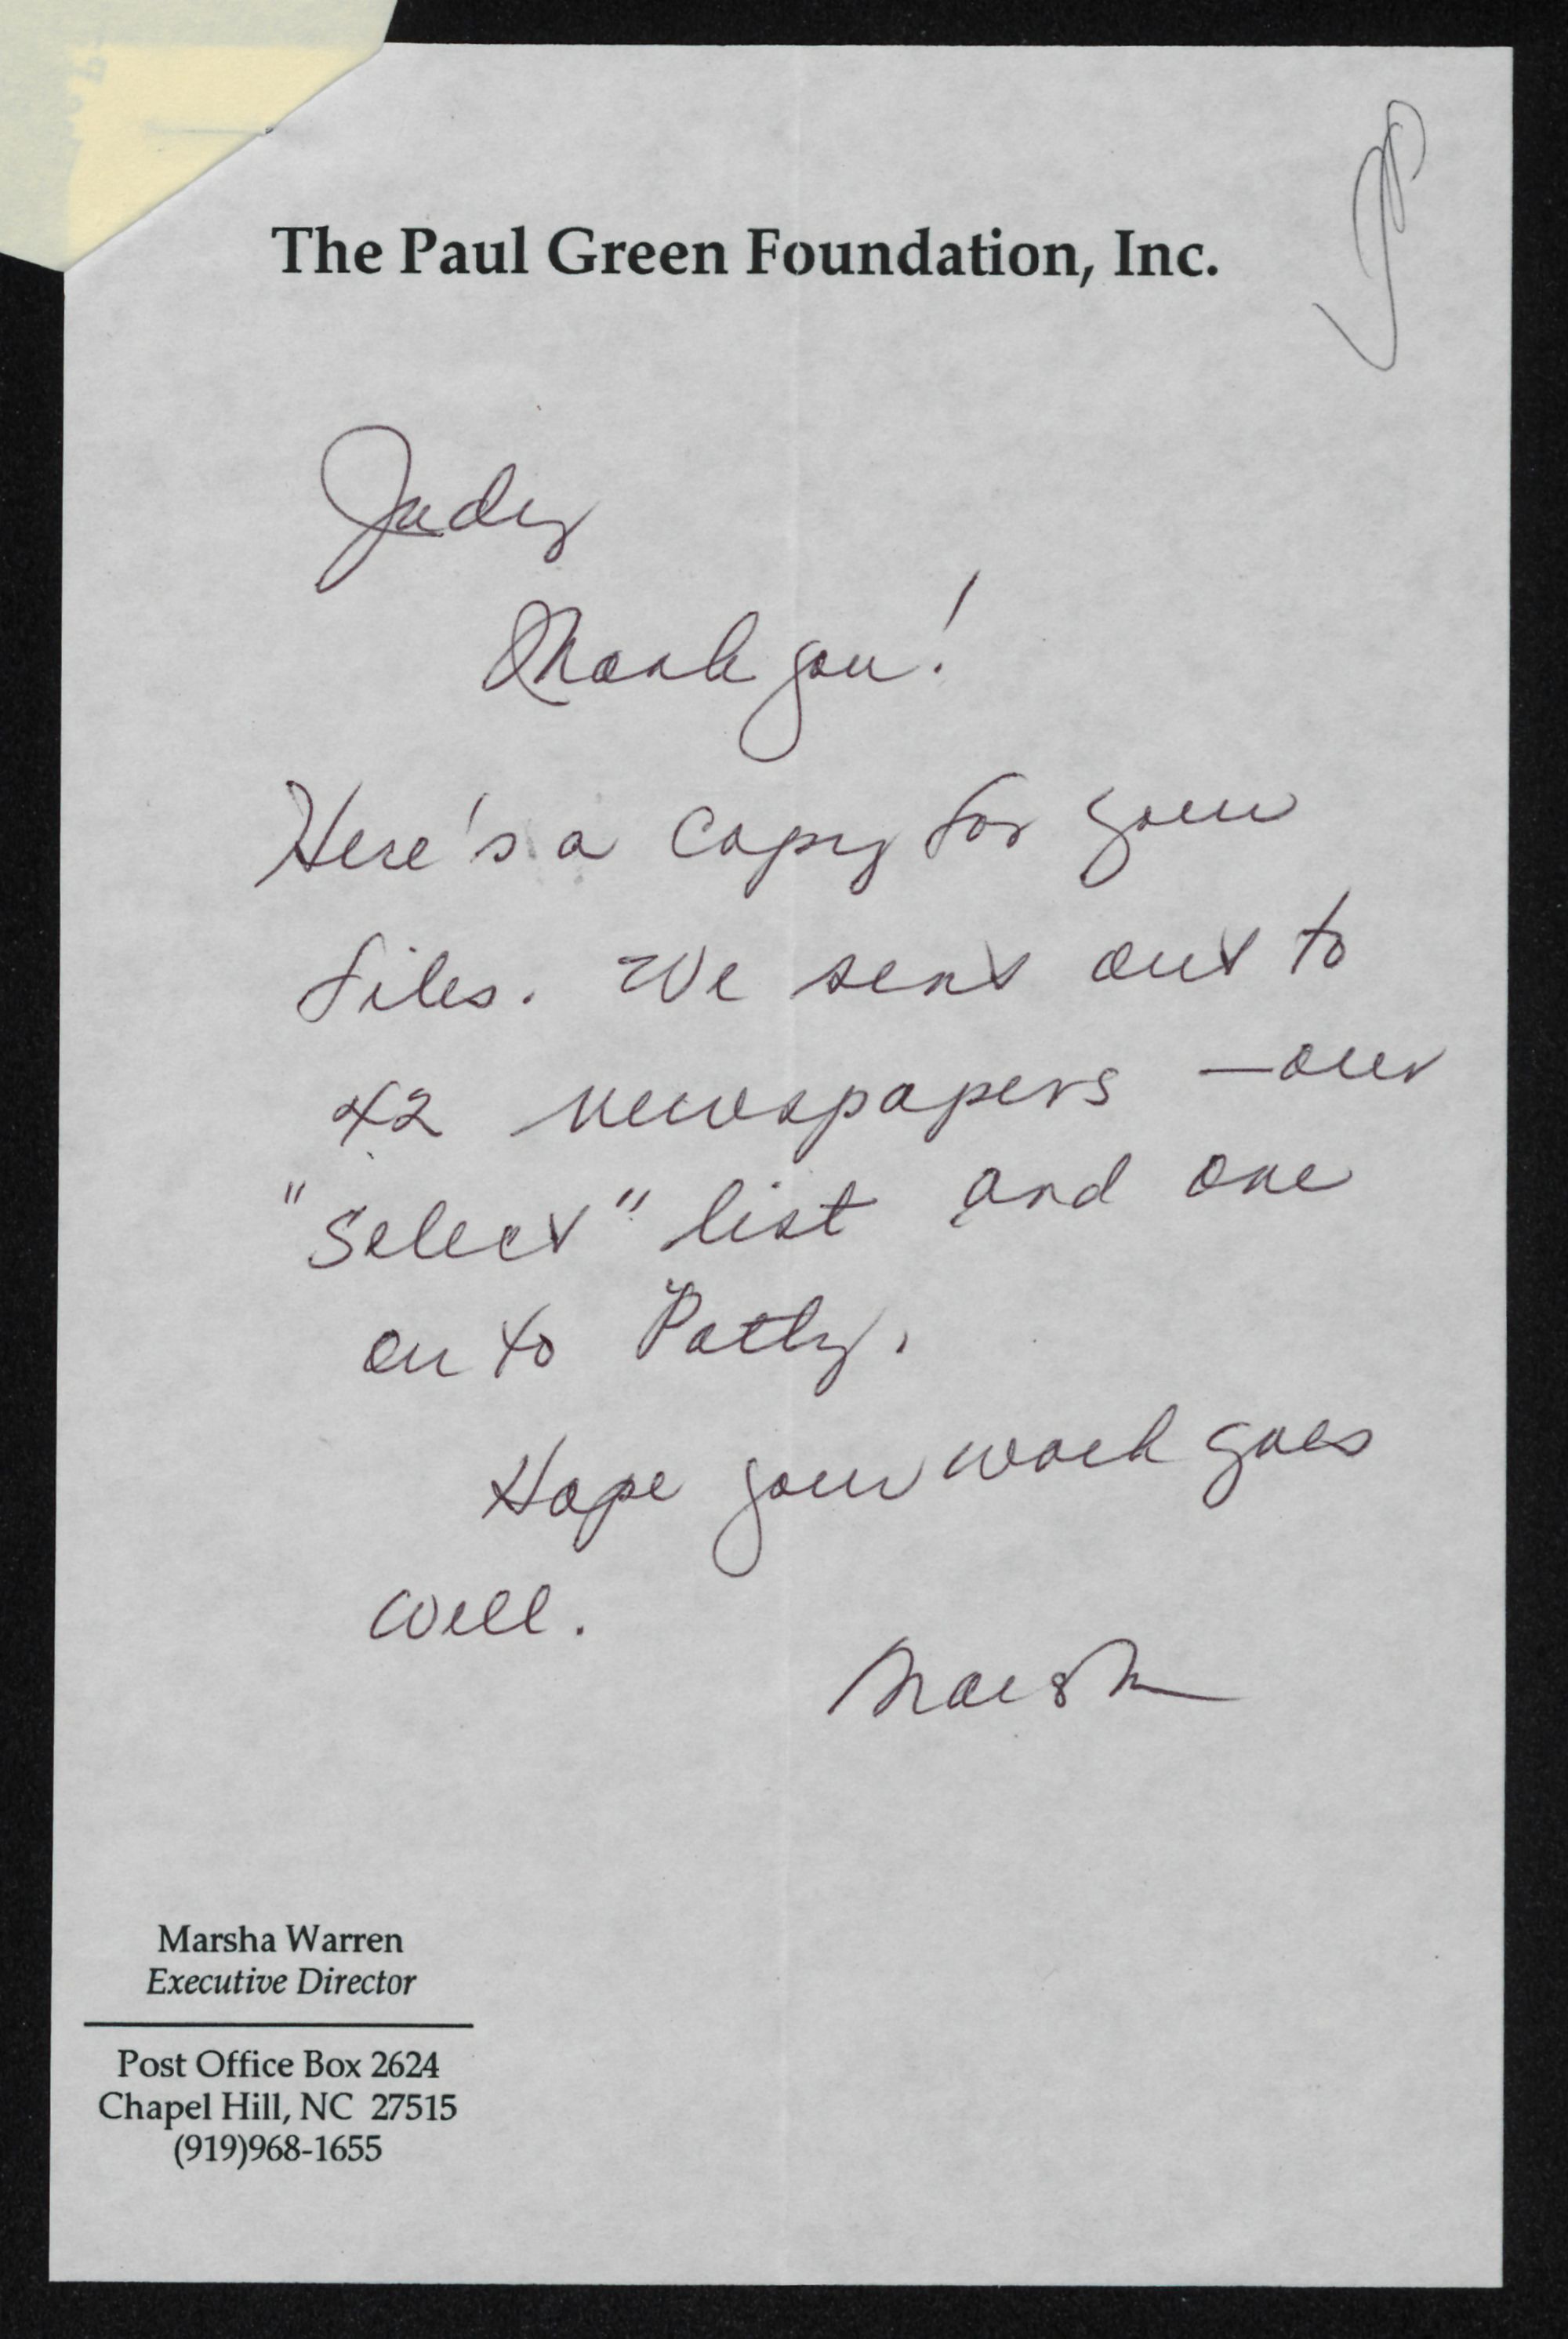 The Paul Green Foundation, Inc.
Judy
Thank you!
Here's a copy for your
files. We sent out to
42 newspapers – our
"Select" list and one
on to Patty.
Hope your work goes
well.
Marsha
Marsha Warren
Executive Director
Post Office Box 2624
Chapel Hill, NC 27515
(919)968-1655